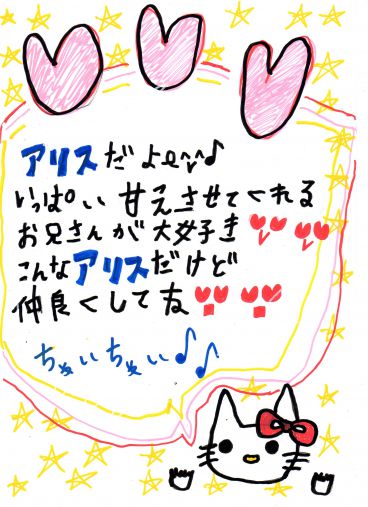 アリスだよ〜♪
いっぱい甘えさせてくれる
お兄さんが大好き
こんなアリスだけど
仲良くしてね
ちゅいちゅい♪♪